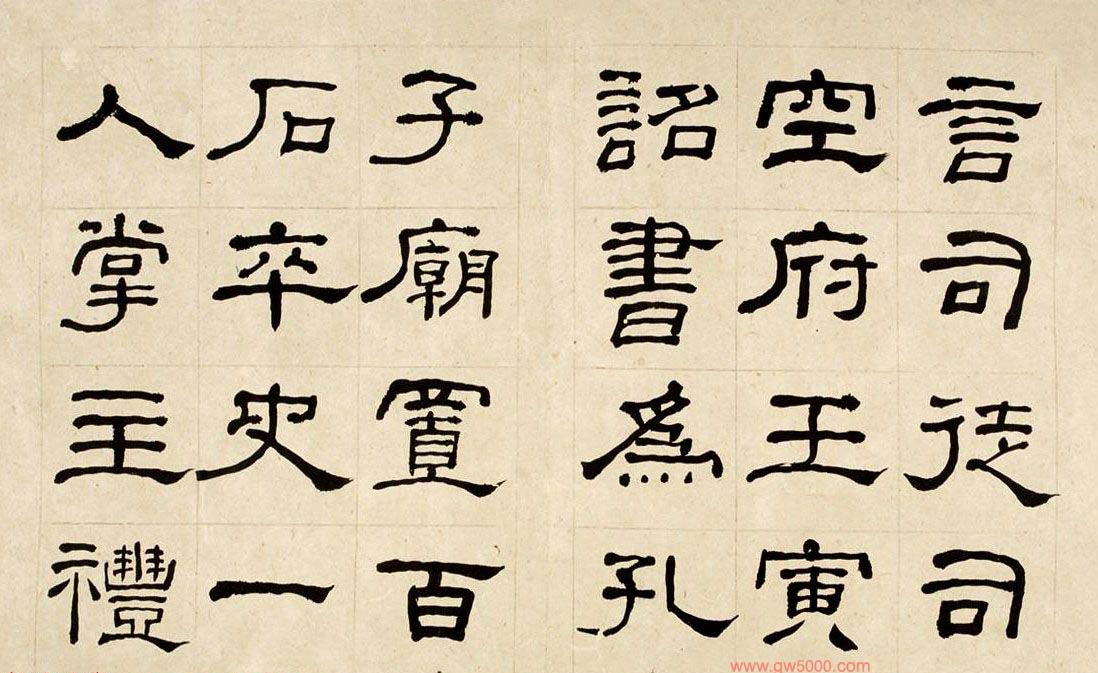 言司徒司
空府王寅
詔書為孔
子廟置百
石卒史一
人掌主禮
www.gw5000.com